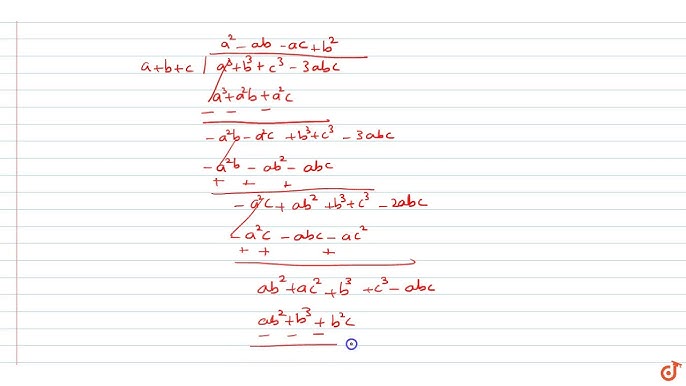 a² - ab - ac + b²
a+b+c | a³+b³+c³ - 3abc
a³+a²b+a²c
- - -
-a²b - a²c + b³+c³ - 3abc
-a²b - ab² - abc
+ + +
-a²c + ab² + b³+c³ - 2abc
-a²c - abc - ac²
+ + +
ab²+ac²+b³ +c³ - abc
ab²+b³+b²c
- - -